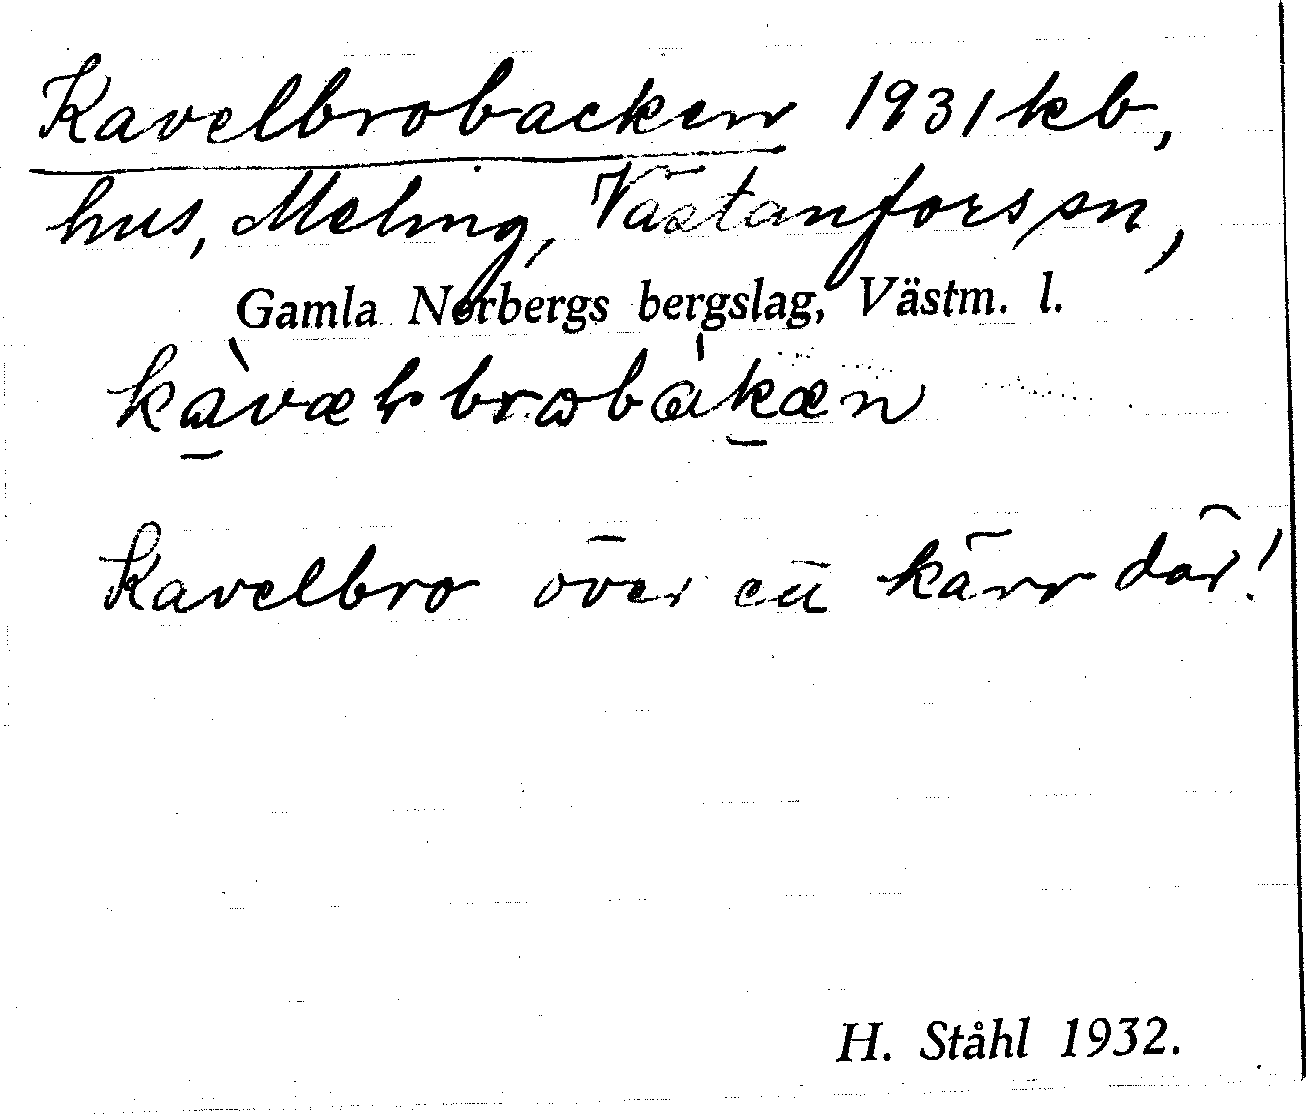 Kavelbrobacken 1931 kb,
hus, Meling, Västanfors sn,
Gamla Norbergs bergslag, Västm. l.
Kavelbro över ett kärr där!
H. Ståhl 1932.